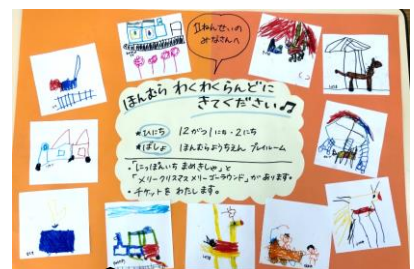 1ねんせいの
みなさんへ
ほんむら わくわくらんどに
きてください♫
★ひにち 12がつ1にち・2にち
★ばしょ ほんむらようちえん プレイルーム
・「にっぽんいち まめきしゃ」と
「メリークリスマスメリーゴーラウンド」が あります。
・チケットを わたします。